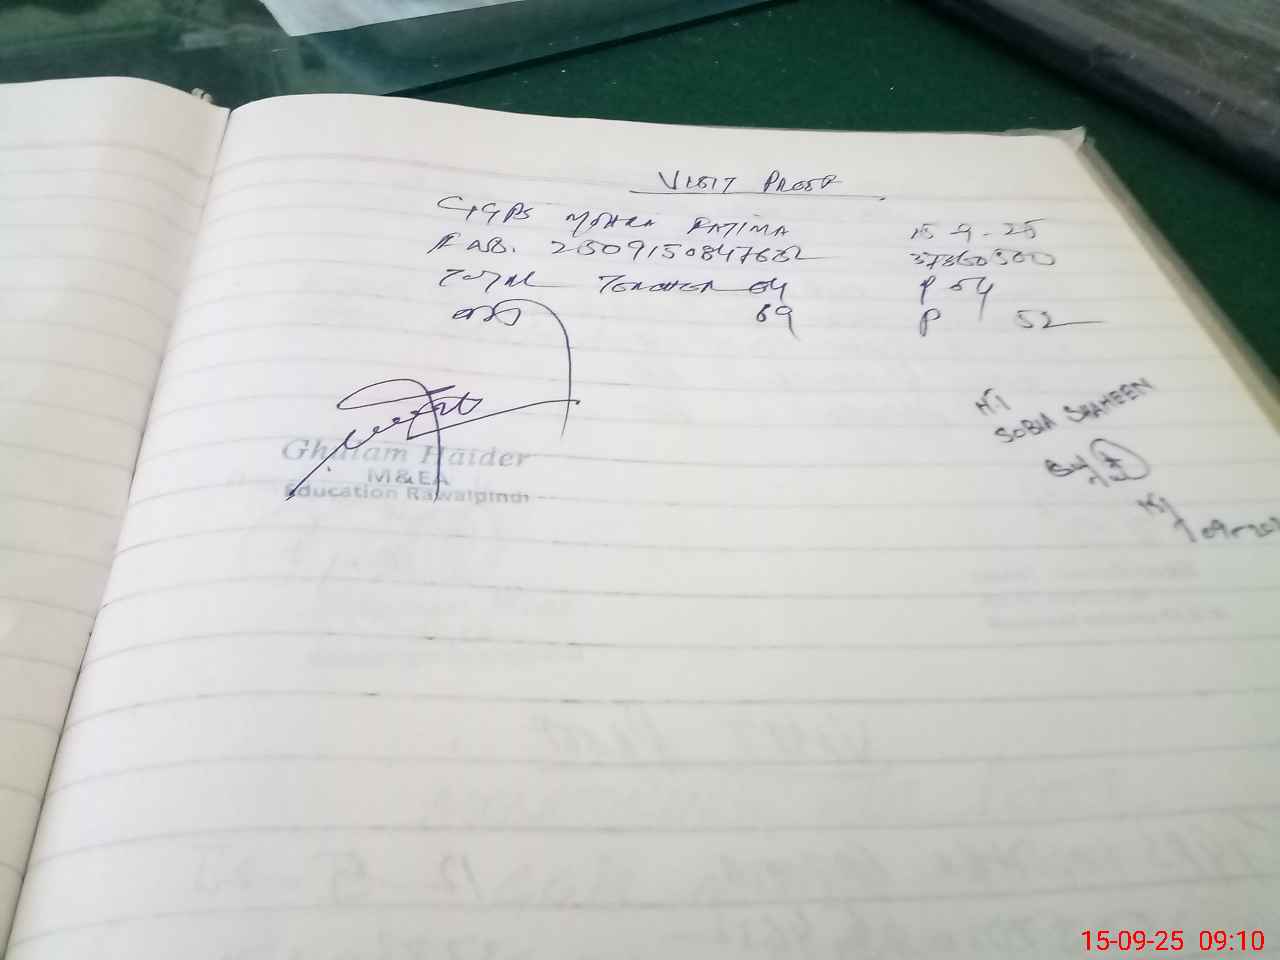 VISIT PROOF
GGPS MOHRA FATIMA 15-9-25
TAB. 2509150847632 37360500
TOTAL TEACHER 04 P 04
69 P 52
Ghulam Haider
M&EA
Education Rawalpindi
HT
SOBIA SHAHEEN
15-09-25 09:10